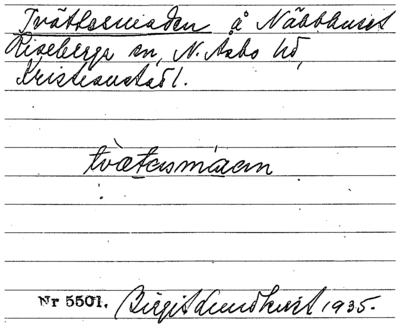 Tvättaremaden å Näbbhuset
Riseberga sn, N. Åsbo hd,
Kristianstads l.
tvætasmáan
Nr 5501. Birgit Lundkvist 1935.